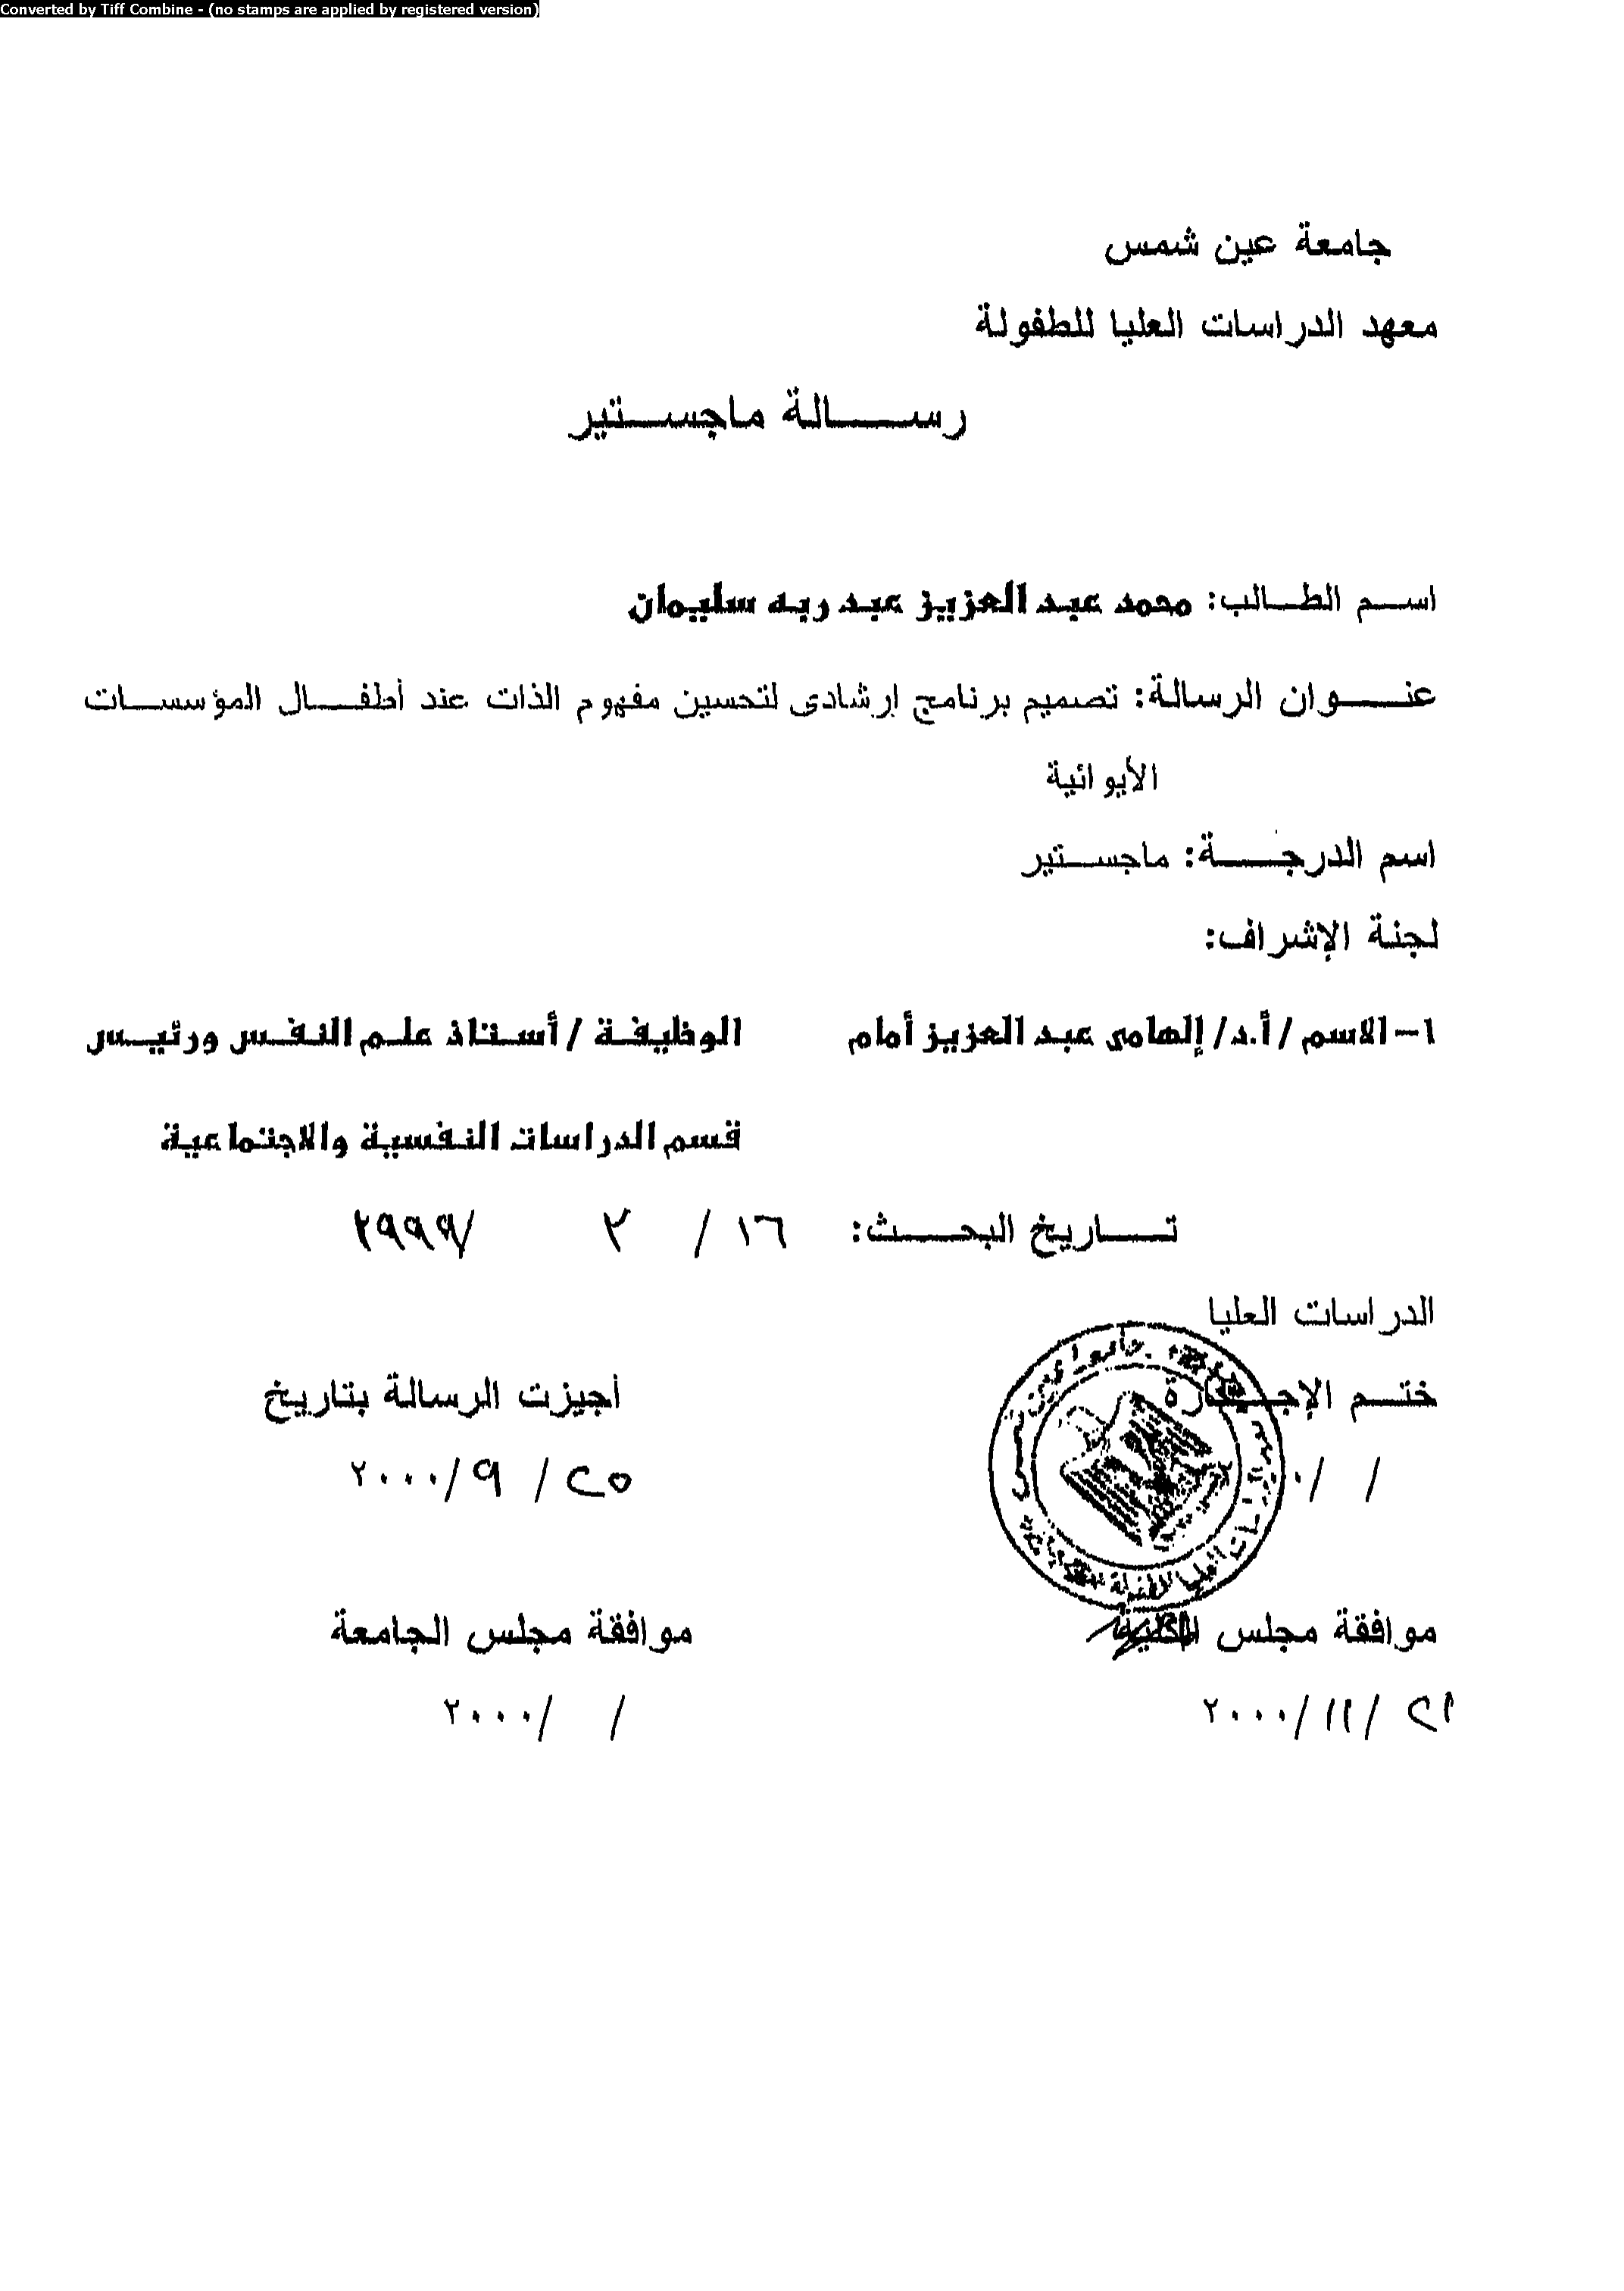 Converted by Tiff Combine - (no stamps are applied by registered version)
جامعة عين شمس
معهد الدراسات العليا للطفولة
رسالة ماجستير
اسم الطالب: محمد عبد العزيز عبد ربه سليمان
عنوان الرسالة: تصميم برنامج إرشادى لتحسين مفهوم الذات عند أطفال المؤسسات
الأيوائية
اسم الدرجة: ماجستير
لجنة الإشراف:
١- الاسم / أ.د/ إلهامى عبد العزيز أمام الوظيفة / أستاذ علم النفس ورئيس
قسم الدراسات النفسية والاجتماعية
تاريخ البحث: ١٦ / ٣ /
الدراسات العليا
ختم الإجازة أجيزت الرسالة بتاريخ
/ / ٢٥ / ٩ /٢٠٠٠
موافقة مجلس الكلية موافقة مجلس الجامعة
٢١ / ١١ /٢٠٠٠ / /٢٠٠٠